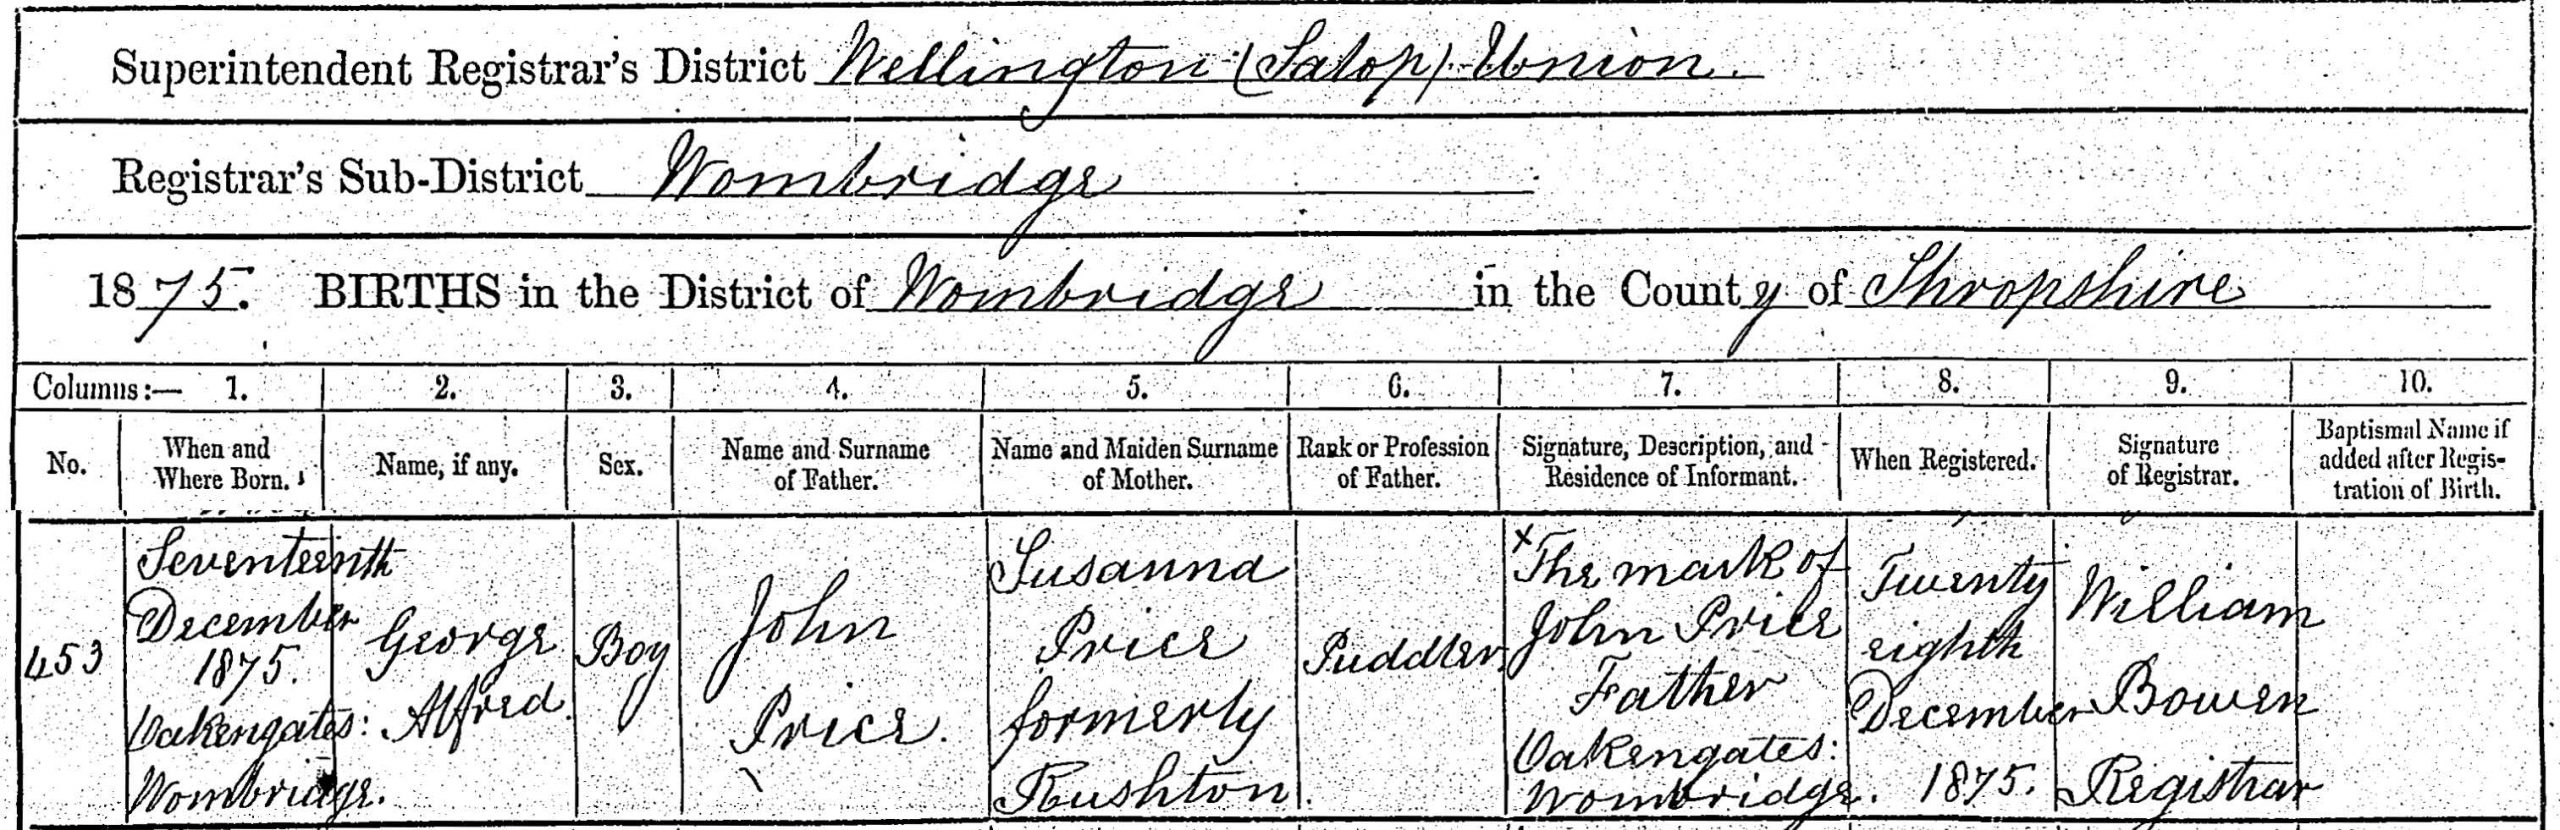 Superintendent Registrar's District Wellington (Salop) Union.
Registrar's Sub-District Wombridge
1875. BIRTHS in the District of Wombridge in the County of Shropshire
Columns:— 1. 2. 3. 4. 5. 6. 7. 8. 9. 10.
No.
When and
Where Born.
Name, if any.
Sex.
Name and Surname
of Father.
Name and Maiden Surname
of Mother.
Rank or Profession
of Father.
Signature, Description, and
Residence of Informant.
When Registered.
Signature
of Registrar.
Baptismal Name if
added after Regis-
tration of Birth.
453
Seventeenth
December
1875.
Oakengates:
Wombridge.
George
Alfred.
Boy
John
Price.
Susanna
Price
formerly
Rushton.
Puddler.
x The mark of
John Price
Father
Oakengates:
Wombridge.
Twenty
eighth
December
1875.
William
Bowen
Registrar